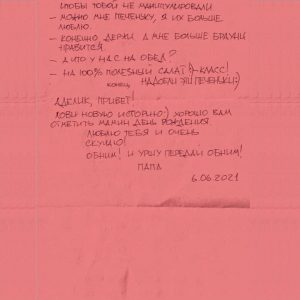 чтобы тобой не манипулировали
– можно мне печеньку, я их больше
люблю.
– конечно, держи, а мне больше брауни
нравится.
– а что у нас на обед?
– на 100% полезный салат :) – класс!
конец. надоели эти печеньки :)
Адклик, привет!
лови новую историю :) хорошо вам
отметить мамин день рождения
люблю тебя и очень
скучаю!
обним! и Уршу передай обним!
папа
6.06.2021